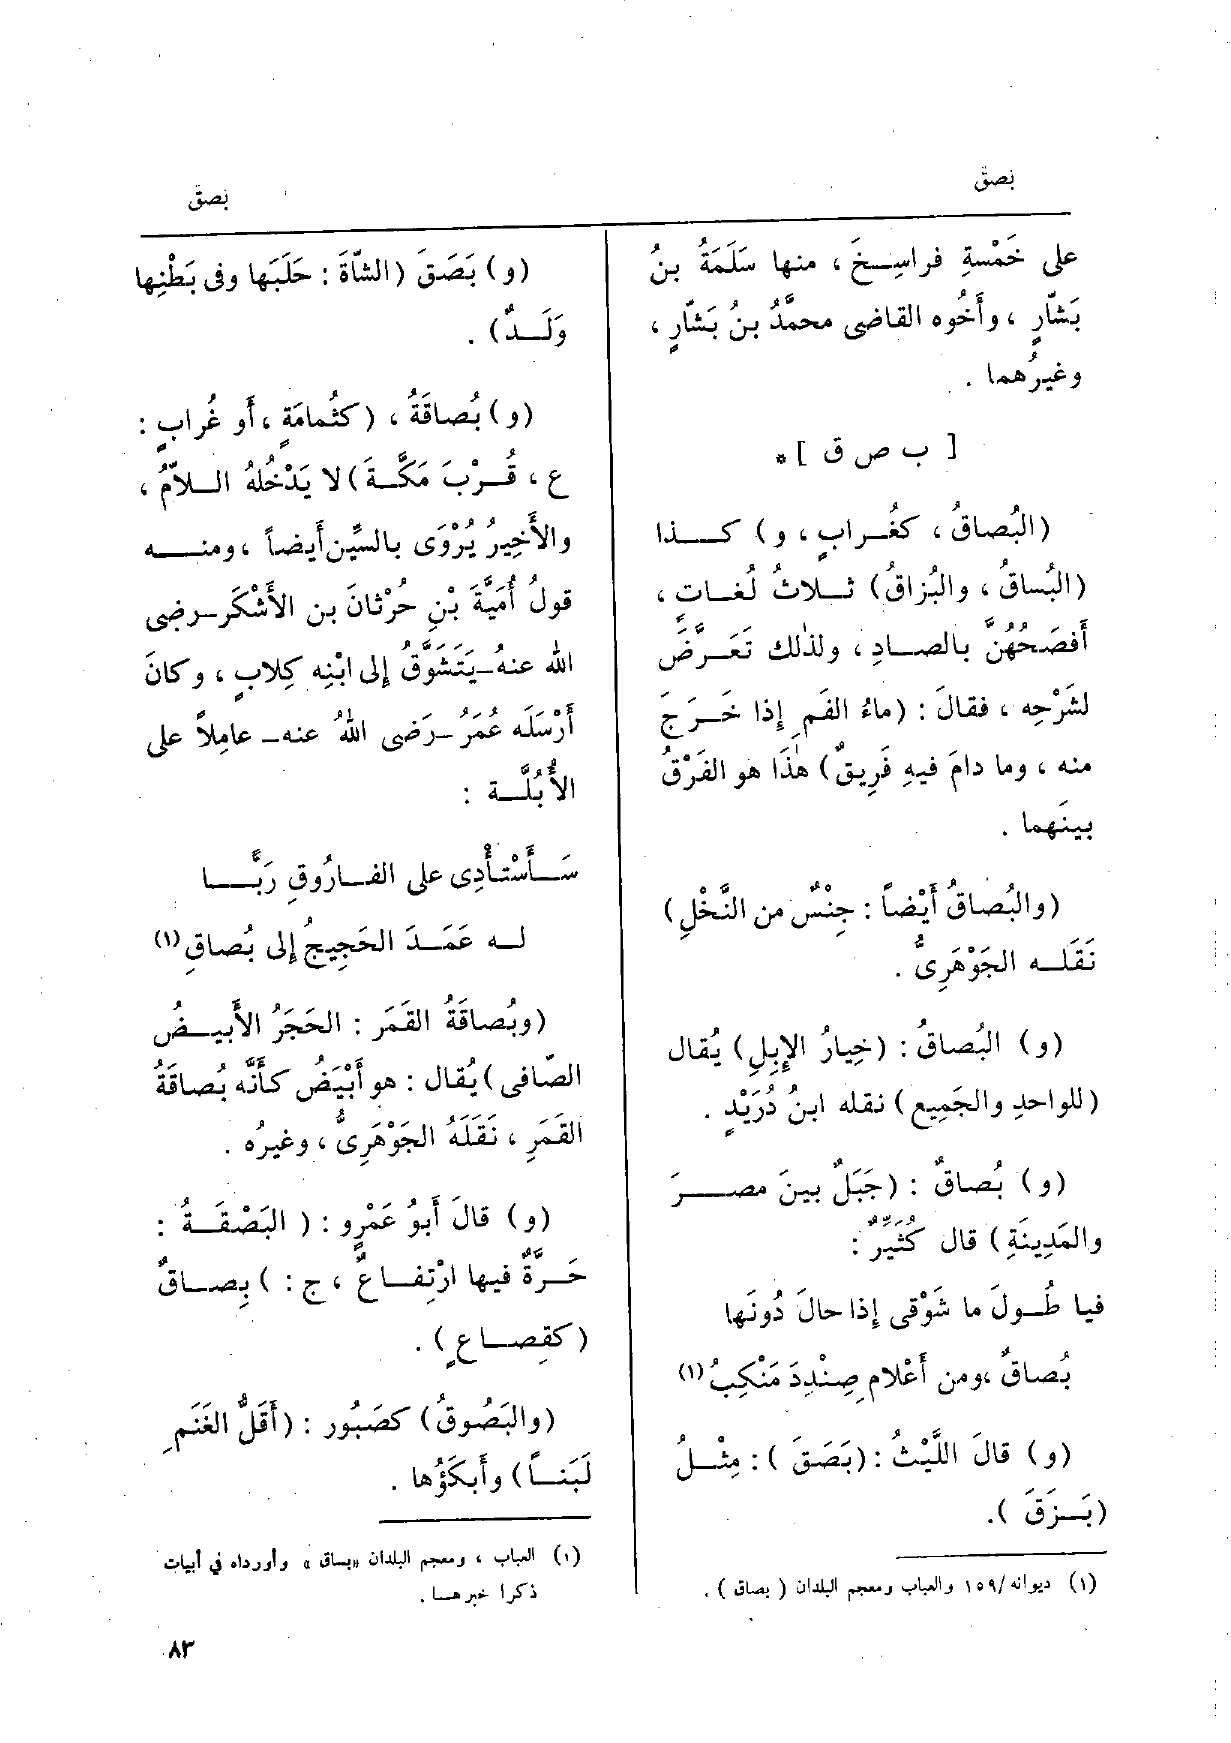 بصق
بصق
على خَمْسةِ فراسِـخَ ، منها سَلَمَةُ بنُ
بَشّارٍ ، وأَخُوه القاضى محمَّدُ بنُ بَشّارٍ ،
وغيرُهما .
[ ب ص ق ] *
(البُصاقُ ، كغُـرابٍ ، و) كــذا
(البُساقُ ، والبُزاقُ) ثـلاثُ لُغـاتٍ ،
أَفصَحُهُنَّ بالصـادِ ، ولذٰلك تَعَـرَّضَ
لشَرْحِه ، فقالَ : (ماءُ الفَمِ إِذا خَـرَجَ
منه ، وما دامَ فيهِ فَرِيقٌ) هٰذَا هو الفَرْقُ
بينَهما .
(والبُصاقُ أَيْضاً : جِنْسٌ من النَّخْلِ)
نَقَلـه الجَوْهَرِىُّ .
(و) البُصاقُ : (خِيارُ الإِبِلِ) يُقال
(للواحدِ والجَمِيع) نقله ابنُ دُرَيْدٍ .
(و) بُصاقٌ : (جَبَلٌ بينَ مصـرَ
والمَدِينَةِ) قال كُثَيِّرٌ :
فيا طُـولَ ما شَوْقى إِذا حالَ دُونَها
بُصاقٌ ،ومن أَعْلامِ صِنْدِدَ مَنْكِبُ (١)
(و) قالَ اللَّيْثُ : (بَصَقَ ) : مِثْـلُ
(بَـزَقَ ).
(١) ديوانه/١٥٩ والعباب ومعجم البلدان ( بصاق ) .
(و) بَصَقَ (الشّاةَ : حَلَبَها وفى بَطْنِها
وَلَـدٌ) .
(و) بُصاقَةُ ، (كثُمامَةٍ ، أَو غُرابٍ :
ع ، قُـرْبَ مَكَّـةَ) لا يَدْخُلهُ الـلاّمُ ،
والأَخِيرُ يُرْوَى بالسِّين أَيضاً ،ومنـه
قولُ أُمَيَّةَ بْنِ حُرْثانَ بن الأَشْكَر-رضى
الله عنهُ-يَتَشَوَّقُ إِلى ابْنِه كِلابٍ ، وكانَ
أَرْسَلَه عُمَرُ -رَضى اللهُ عنه- عامِلاً على
الأُبُلَّـة :
سَـأَسْتـأْدِى على الفـارُوقِ رَبًّـا
لـه عَمَـدَ الحَجِيجُ إِلى بُصاقِ (١)
(وبُصاقَةُ القَمَر : الحَجَرُ الأَبيـضُ
الصّافى) يُقال : هو أَبْيَضُ كأَنَّه بُصاقَةُ
القَمَرِ ، نَقَلَهُ الجَوْهَرِىُّ ، وغيرُه .
(و) قالَ أَبوُ عَمْرٍو : ( البَصْقَـةُ :
حَـرَّةٌ فيها ارْتِفـاعٌ ، ج : ) بِصـاقٌ
(كقِصـاعٍ) .
(والبَصُوقُ) كصَبُور : (أَقَلُّ الغَنَمِ
لَبَنـاً) وأَبكَؤُها .
(١) العباب ، ومعجم البلدان «بساق » وأورداه في أبيات
ذكرا خبرهـا .
٨٣